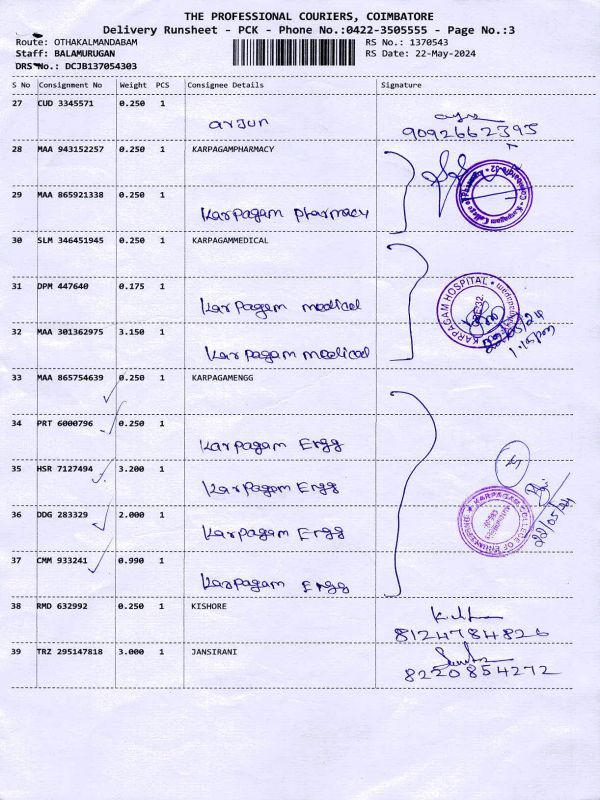 THE PROFESSIONAL COURIERS, COIMBATORE
Delivery Runsheet - PCK - Phone No.:0422-3505555 - Page No.:3
Route: OTHAKALMANDABAM RS No.: 1370543
Staff: BALAMURUGAN RS Date: 22-May-2024
DRS No.: DCJB137054303
S No Consignment No Weight PCS Consignee Details Signature
27 CUD 3345571 0.250 1
arjun
9092662395
28 MAA 943152257 0.250 1 KARPAGAMPHARMACY
29 MAA 865921338 0.250 1
Karpagam pharmacy
30 SLM 346451945 0.250 1 KARPAGAMMEDICAL
31 DPM 447640 0.175 1
Karpagam medical
KARPAGAM HOSPITAL
32 MAA 301362975 3.150 1
Karpagam medical
1.15pm
33 MAA 865754639 0.250 1 KARPAGAMENGG
34 PRT 6000796 0.250 1
Karpagam Engg
35 HSR 7127494 3.200 1
Karpagam Engg
KARPAGAM COLLEGE OF ENGINEERING
36 DDG 283329 2.000 1
Karpagam Engg
22/05/24
37 CMM 933241 0.990 1
Karpagam Engg
38 RMD 632992 0.250 1 KISHORE
8124784826
39 TRZ 295147818 3.000 1 JANSIRANI
8220854272